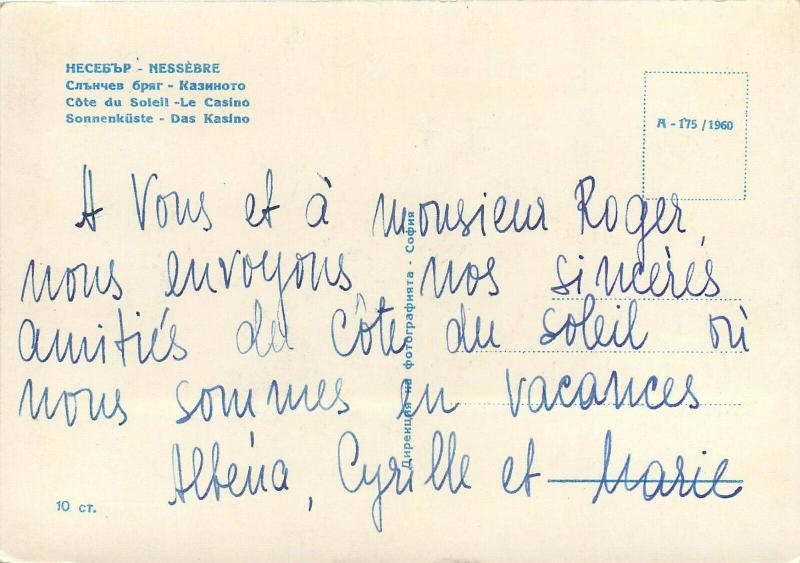 НЕСЕБЪР - NESSÈBRE
Слънчев бряг - Казиното
Côte du Soleil -Le Casino
Sonnenküste - Das Kasino
A - 175 / 1960
A Vous et à monsieur Roger,
nous envoyons nos sincères
amitiés du Côte du soleil où
nous sommes en vacances
Albéna, Cyrille et Marie
Дирекция на фотографията - София
10 ст.